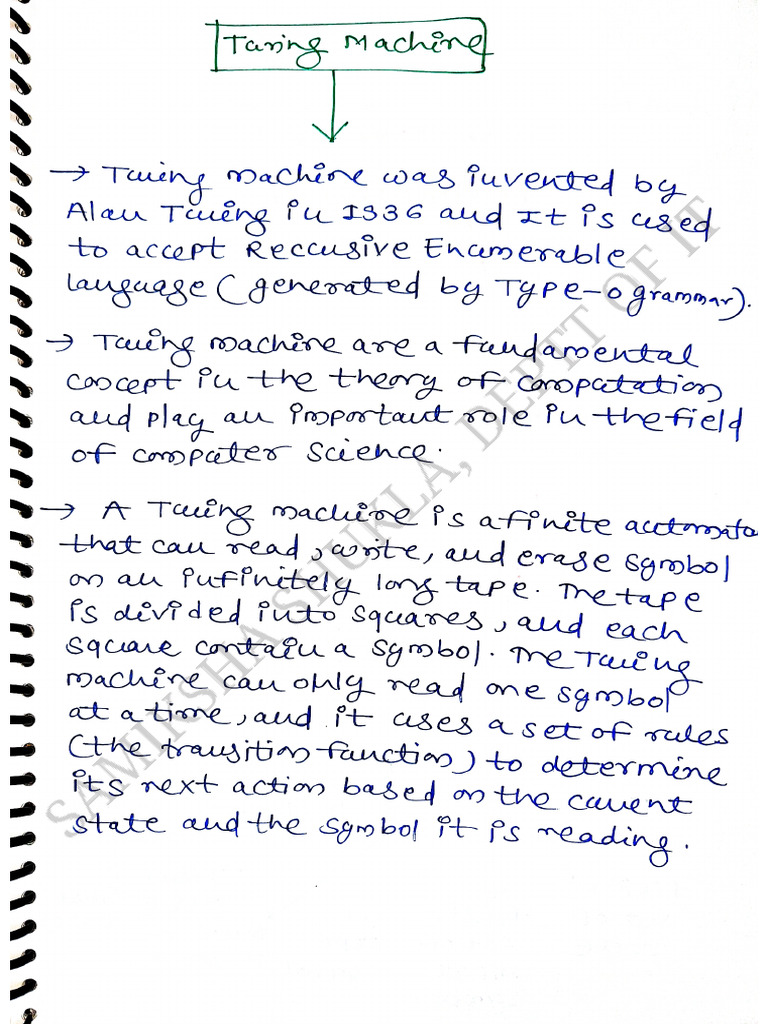 Turing Machine
→ Turing machine was invented by
Alan Turing in 1936 and It is used
to accept Reccusive Enumerable
language (generated by Type-0 grammar).
→ Turing machine are a fundamental
concept in the theory of computation
and play an important role in the field
of computer science.
→ A Turing machine is a finite automata
that can read, write, and erase symbol
on an infinitely long tape. The tape
is divided into squares, and each
square contain a symbol. The Turing
machine can only read one symbol
at a time, and it uses a set of rules
(the transition function) to determine
its next action based on the current
state and the symbol it is reading.
SAMIKSHA SHUKLA, DEPTT OF IT